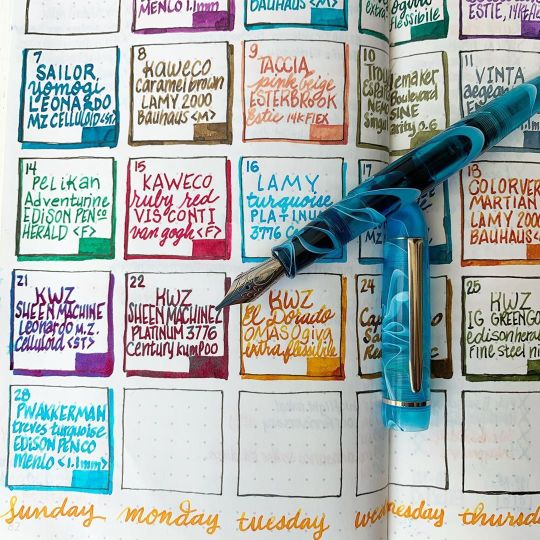 MENLO 1.1mm
BAUHAUS <M>
extra
flessibile
ESTIE, 14K FLEX
7
SAILOR
yomogi
LEONARDO
MZ CELLULOID <ST>
8
Kaweco
Caramel brown
LAMY 2000
Bauhaus <M>
9
TACCIA
pink beige
ESTERBROOK
Estie 14K FLEX
10
Boulevard
SINE
11
VINTA
aegean
14
Pelikan
Adventurine
EDISON PEN Co
HERALD <F>
15
KAWECO
ruby red
VISCONTI
van gogh <F>
16
LAMY
turquoise
PLATINUM
3776
17
18
COLORVER
MARTIAN
LAMY 2000
BAUHAUS
21
KWZ
SHEEN MACHINE
Leonardo M.Z.
celluloid <ST>
22
KWZ
SHEEN MACHINE2
PLATINUM 3776
Century KUMPOO
KWZ
El Dorado
OMAS Ogiva
extra flessibile
24
25
KWZ
IG GREEN GO
edison hera
Fine steel ni
28
PW AKKERMAN
treves turquoise
EDISON PEN CO
Menlo <1.1mm>
sunday monday tuesday wednesday thursd